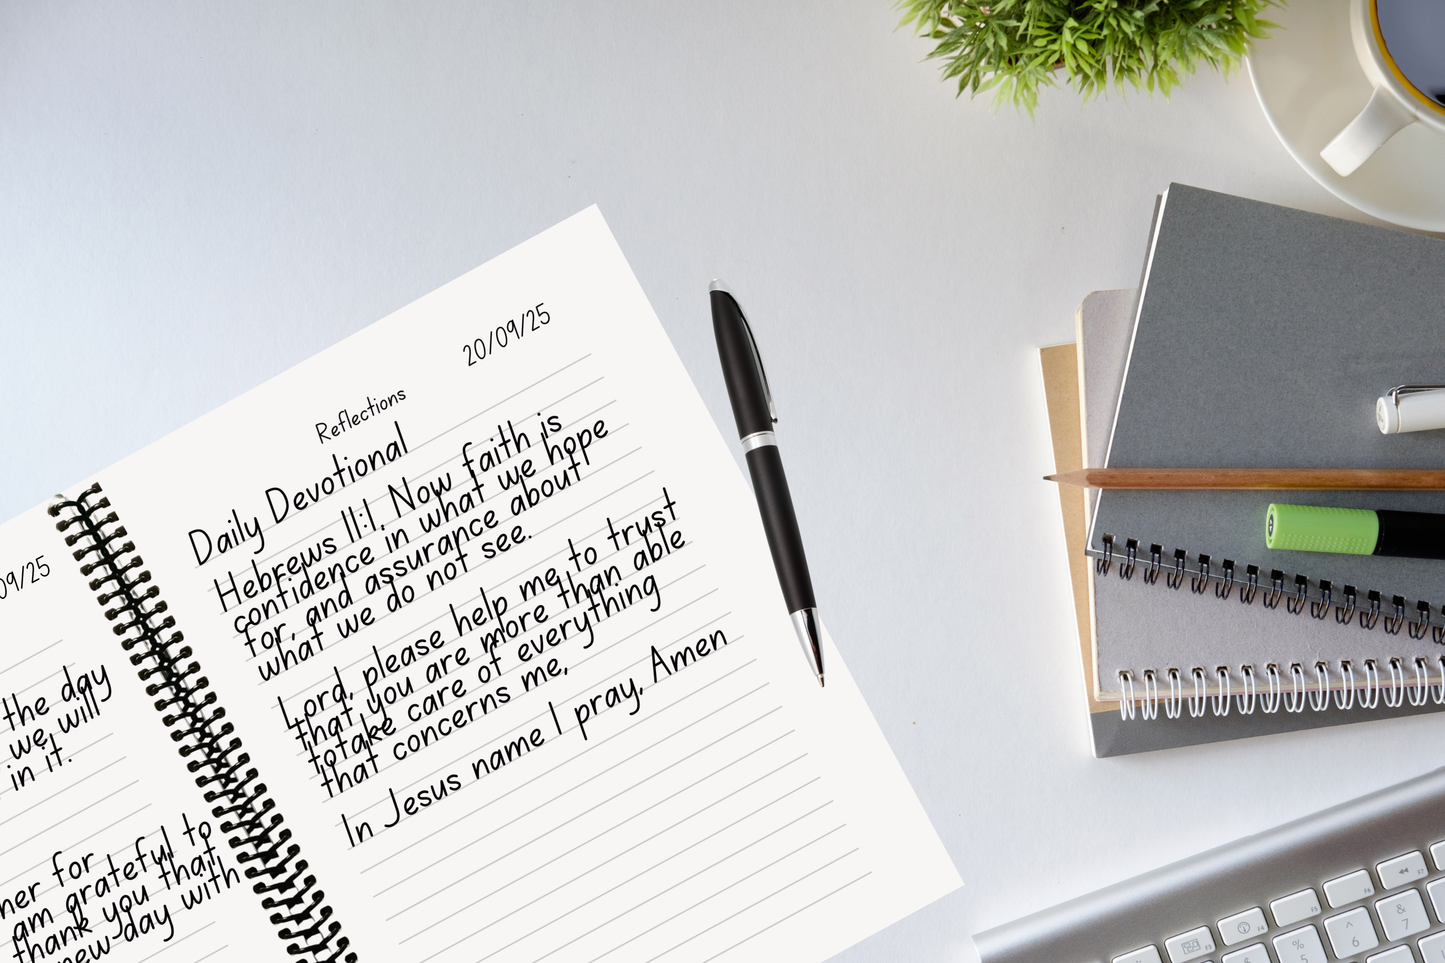 09/25
the day
we will
in it.
ner for
am grateful to
thank you that
new day with
20/09/25
Reflections
Daily Devotional
Hebrews 11:1. Now faith is
confidence in what we hope
for, and assurance about
what we do not see.
Lord, please help me to trust
that you are more than able
totake care of everything
that concerns me,
In Jesus name I pray, Amen
F4
F5
F6
F7
%
5
^
6
&
7